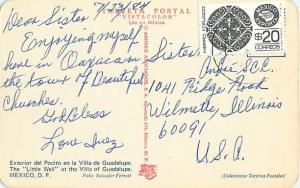 TARJETA POSTAL
"VISTACOLOR"
Lito en México
7/23/84
Dear Sister
Enjoying myself
here in Oaxaca
the town of Beautiful
Churches.
God Bless
Love Inez
Sister
S.C.C.
1041 Ridge Road
Wilmette, Illinois
60091
U.S.A
MEXICO
$20
CORREOS
Exterior del Pocito en la Villa de Guadalupe.
The "Little Well" at the Villa of Guadalupe.
MEXICO, D. F.
Foto: Salvador Ferrati
¡Coleccione Tarjetas Postales!